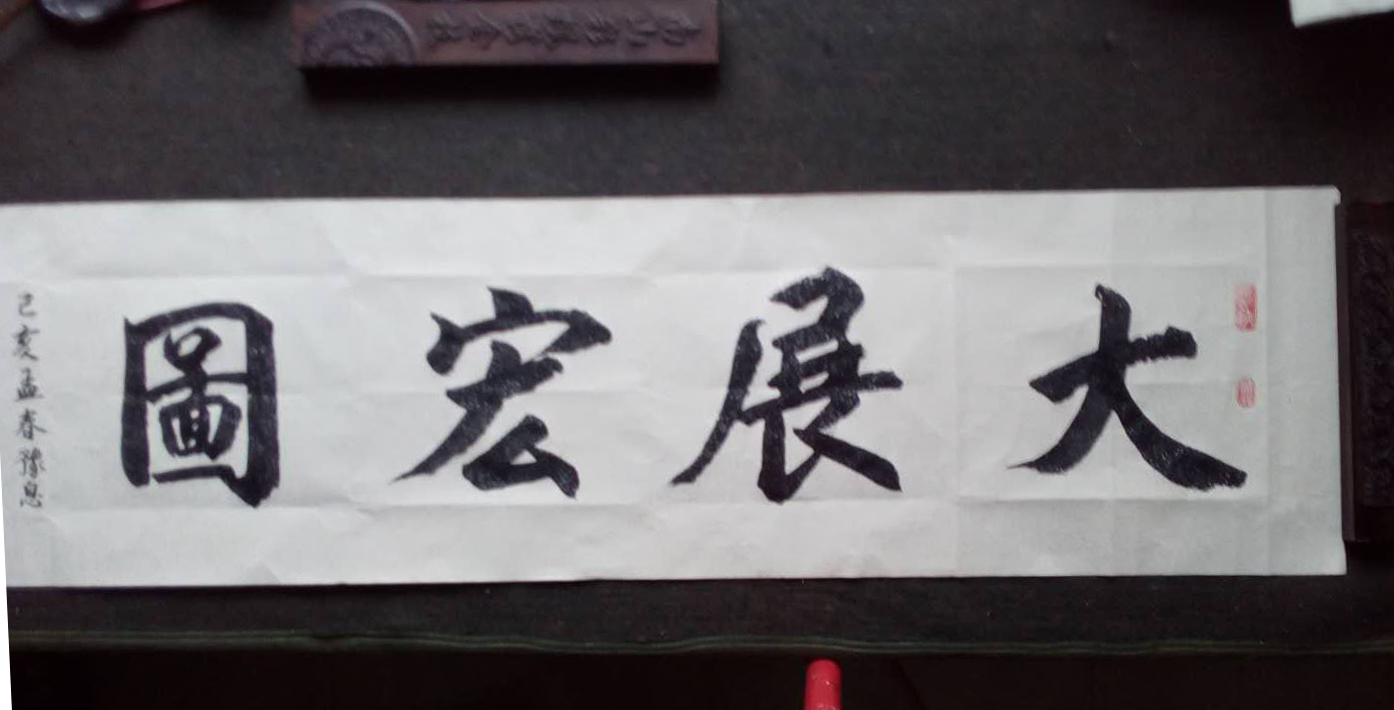 大展宏圖
己亥孟春豫息